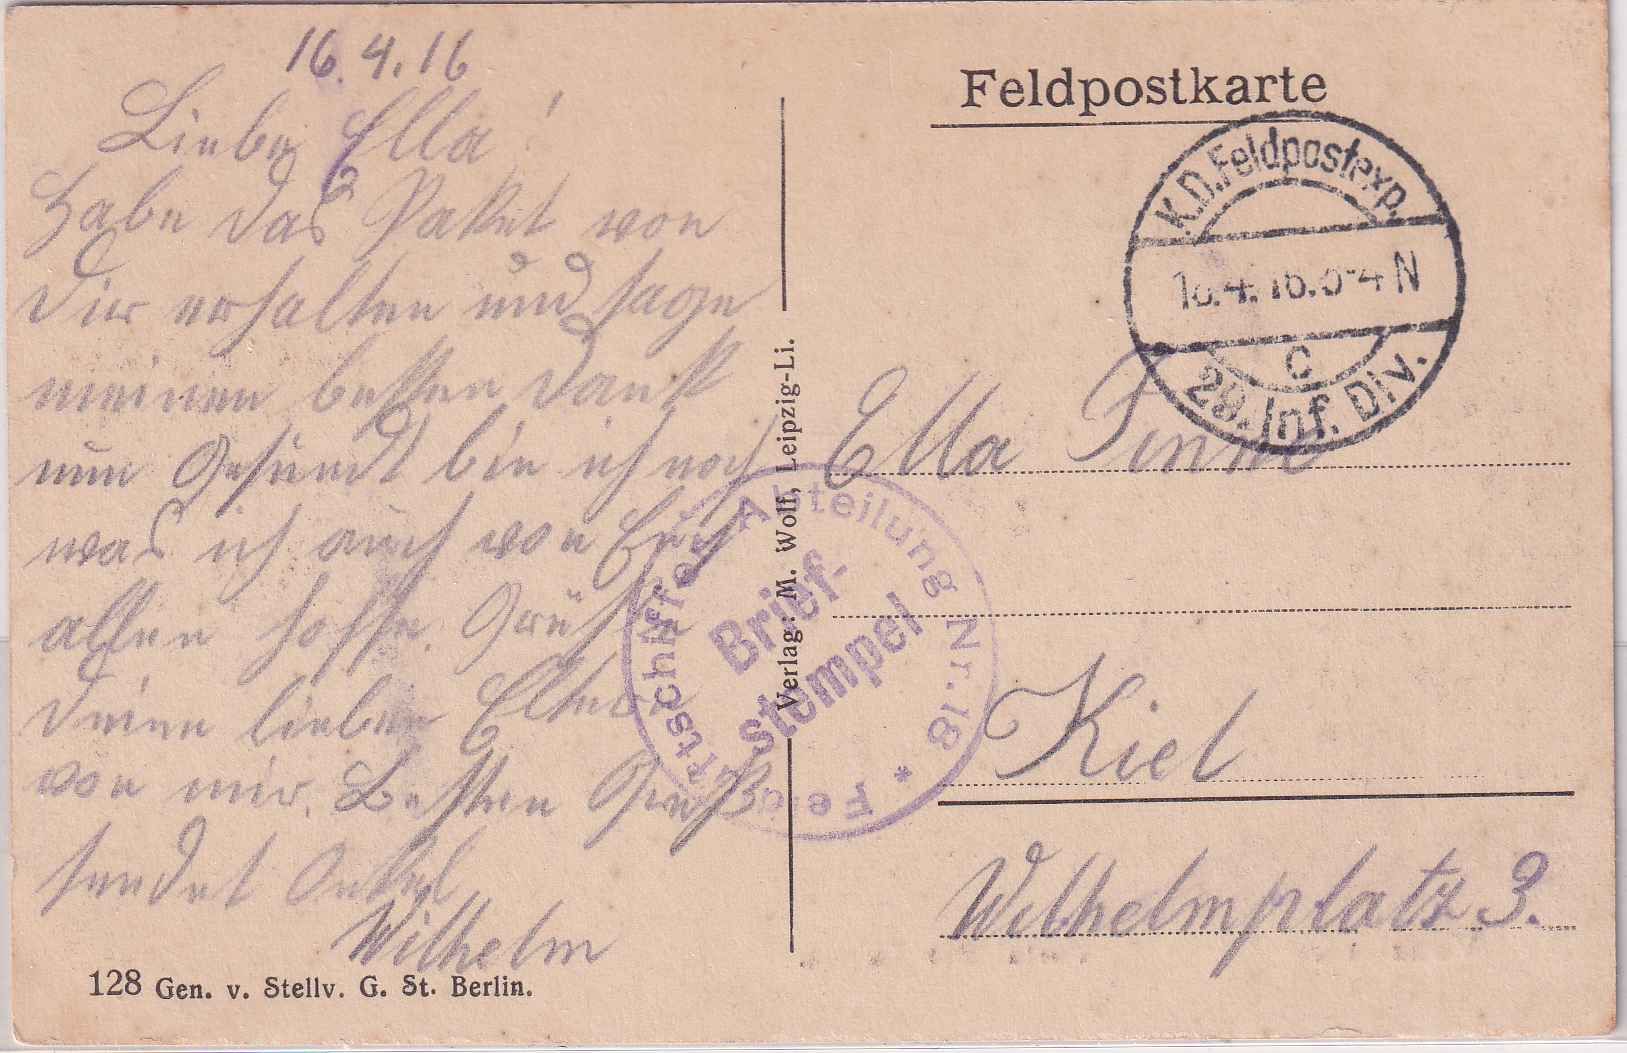 16.4.16
Liebe Ella!
Habe das Paket von
Dir erhalten und sage
meinen besten Dank
nun Gesund bin ich noch
was ich auch von Euch
allen hoffe. Grüße
Deine lieben Eltern
von mir. Besten Gruß
sendet Onkel
Wilhelm
128 Gen. v. Stellv. G. St. Berlin.
Verlag: M. Wolf, Leipzig-Li.
Feldpostkarte
K.D. Feldpostexp.
16.4.16.3-4 N
c
29. Inf. Div.
Feldluftschiffer Abteilung Nr. 18 *
Brief-
stempel
Ella
Kiel
Wilhelmplatz 3.